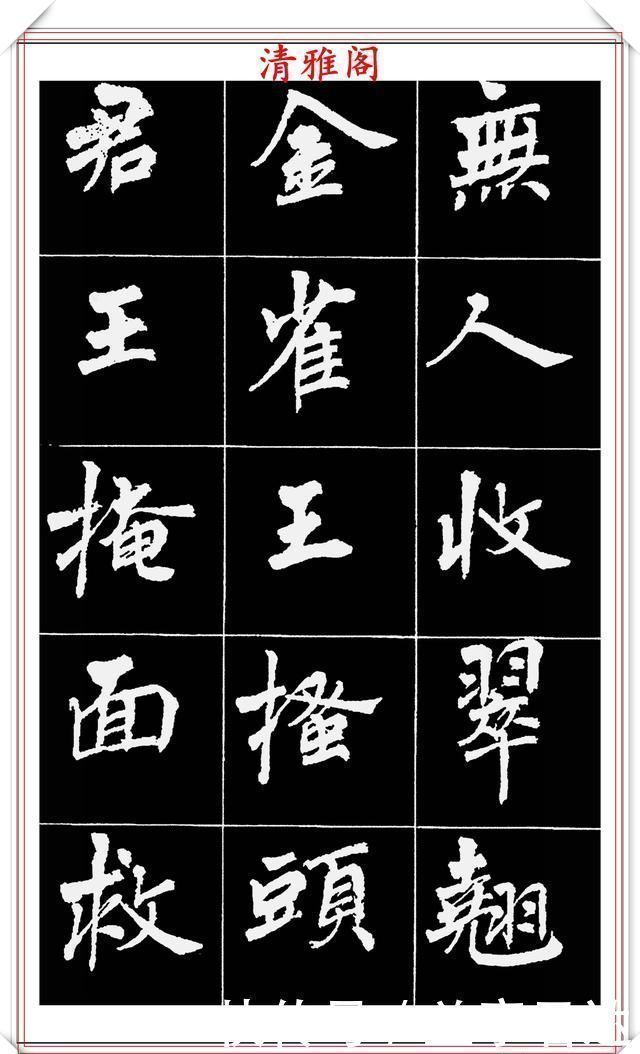 清雅阁
無人收翠翹
金雀王搔頭
君王掩面救